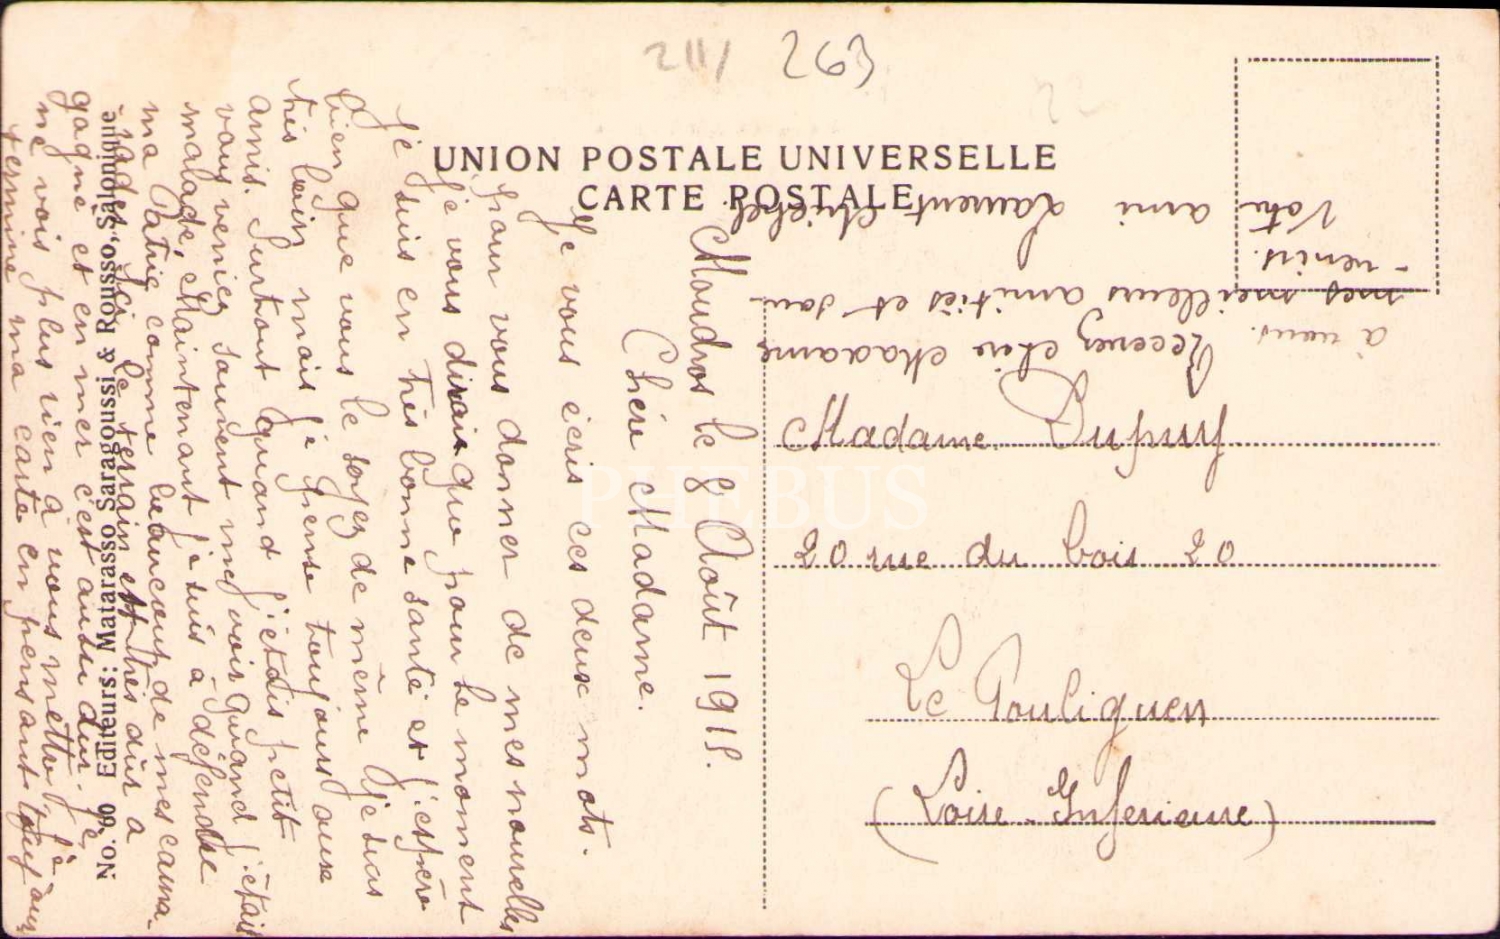 2111 263
UNION POSTALE UNIVERSELLE
CARTE POSTALE
Moudros le 8 Août 1915.
Chère Madame.
Je vous écris ces deux mots.
pour vous donner de mes nouvelles
je vous dirait que pour le moment
je suis en très bonne santé et j'espère
bien que vous le soyez de même Je suis
très loin mais je pense toujours aux
amis. Surtout quand j'étais petit
vous veniez souvent me voir quand j'étais
malade, Maintenant je suis à défendre
ma Patrie comme beaucoup de mes cama-
-rades. Ici le terrain est très dur à
gagné et en mer c'est aussi dur. Je
ne vois plus rien à vous mettre, je
termine ma carte en pensant toujours
à vous.
Recevez chère Madame
mes meilleurs amitiés et sou-
-venirs.
Votre ami Laurent Michel
Madame Dupuy
20 rue du bois 20
Le Pouliguen
(Loire-Inférieure)
No. 66 Editeurs: Matarasso Saragoussi & Rousso, Salonique
PHEBUS